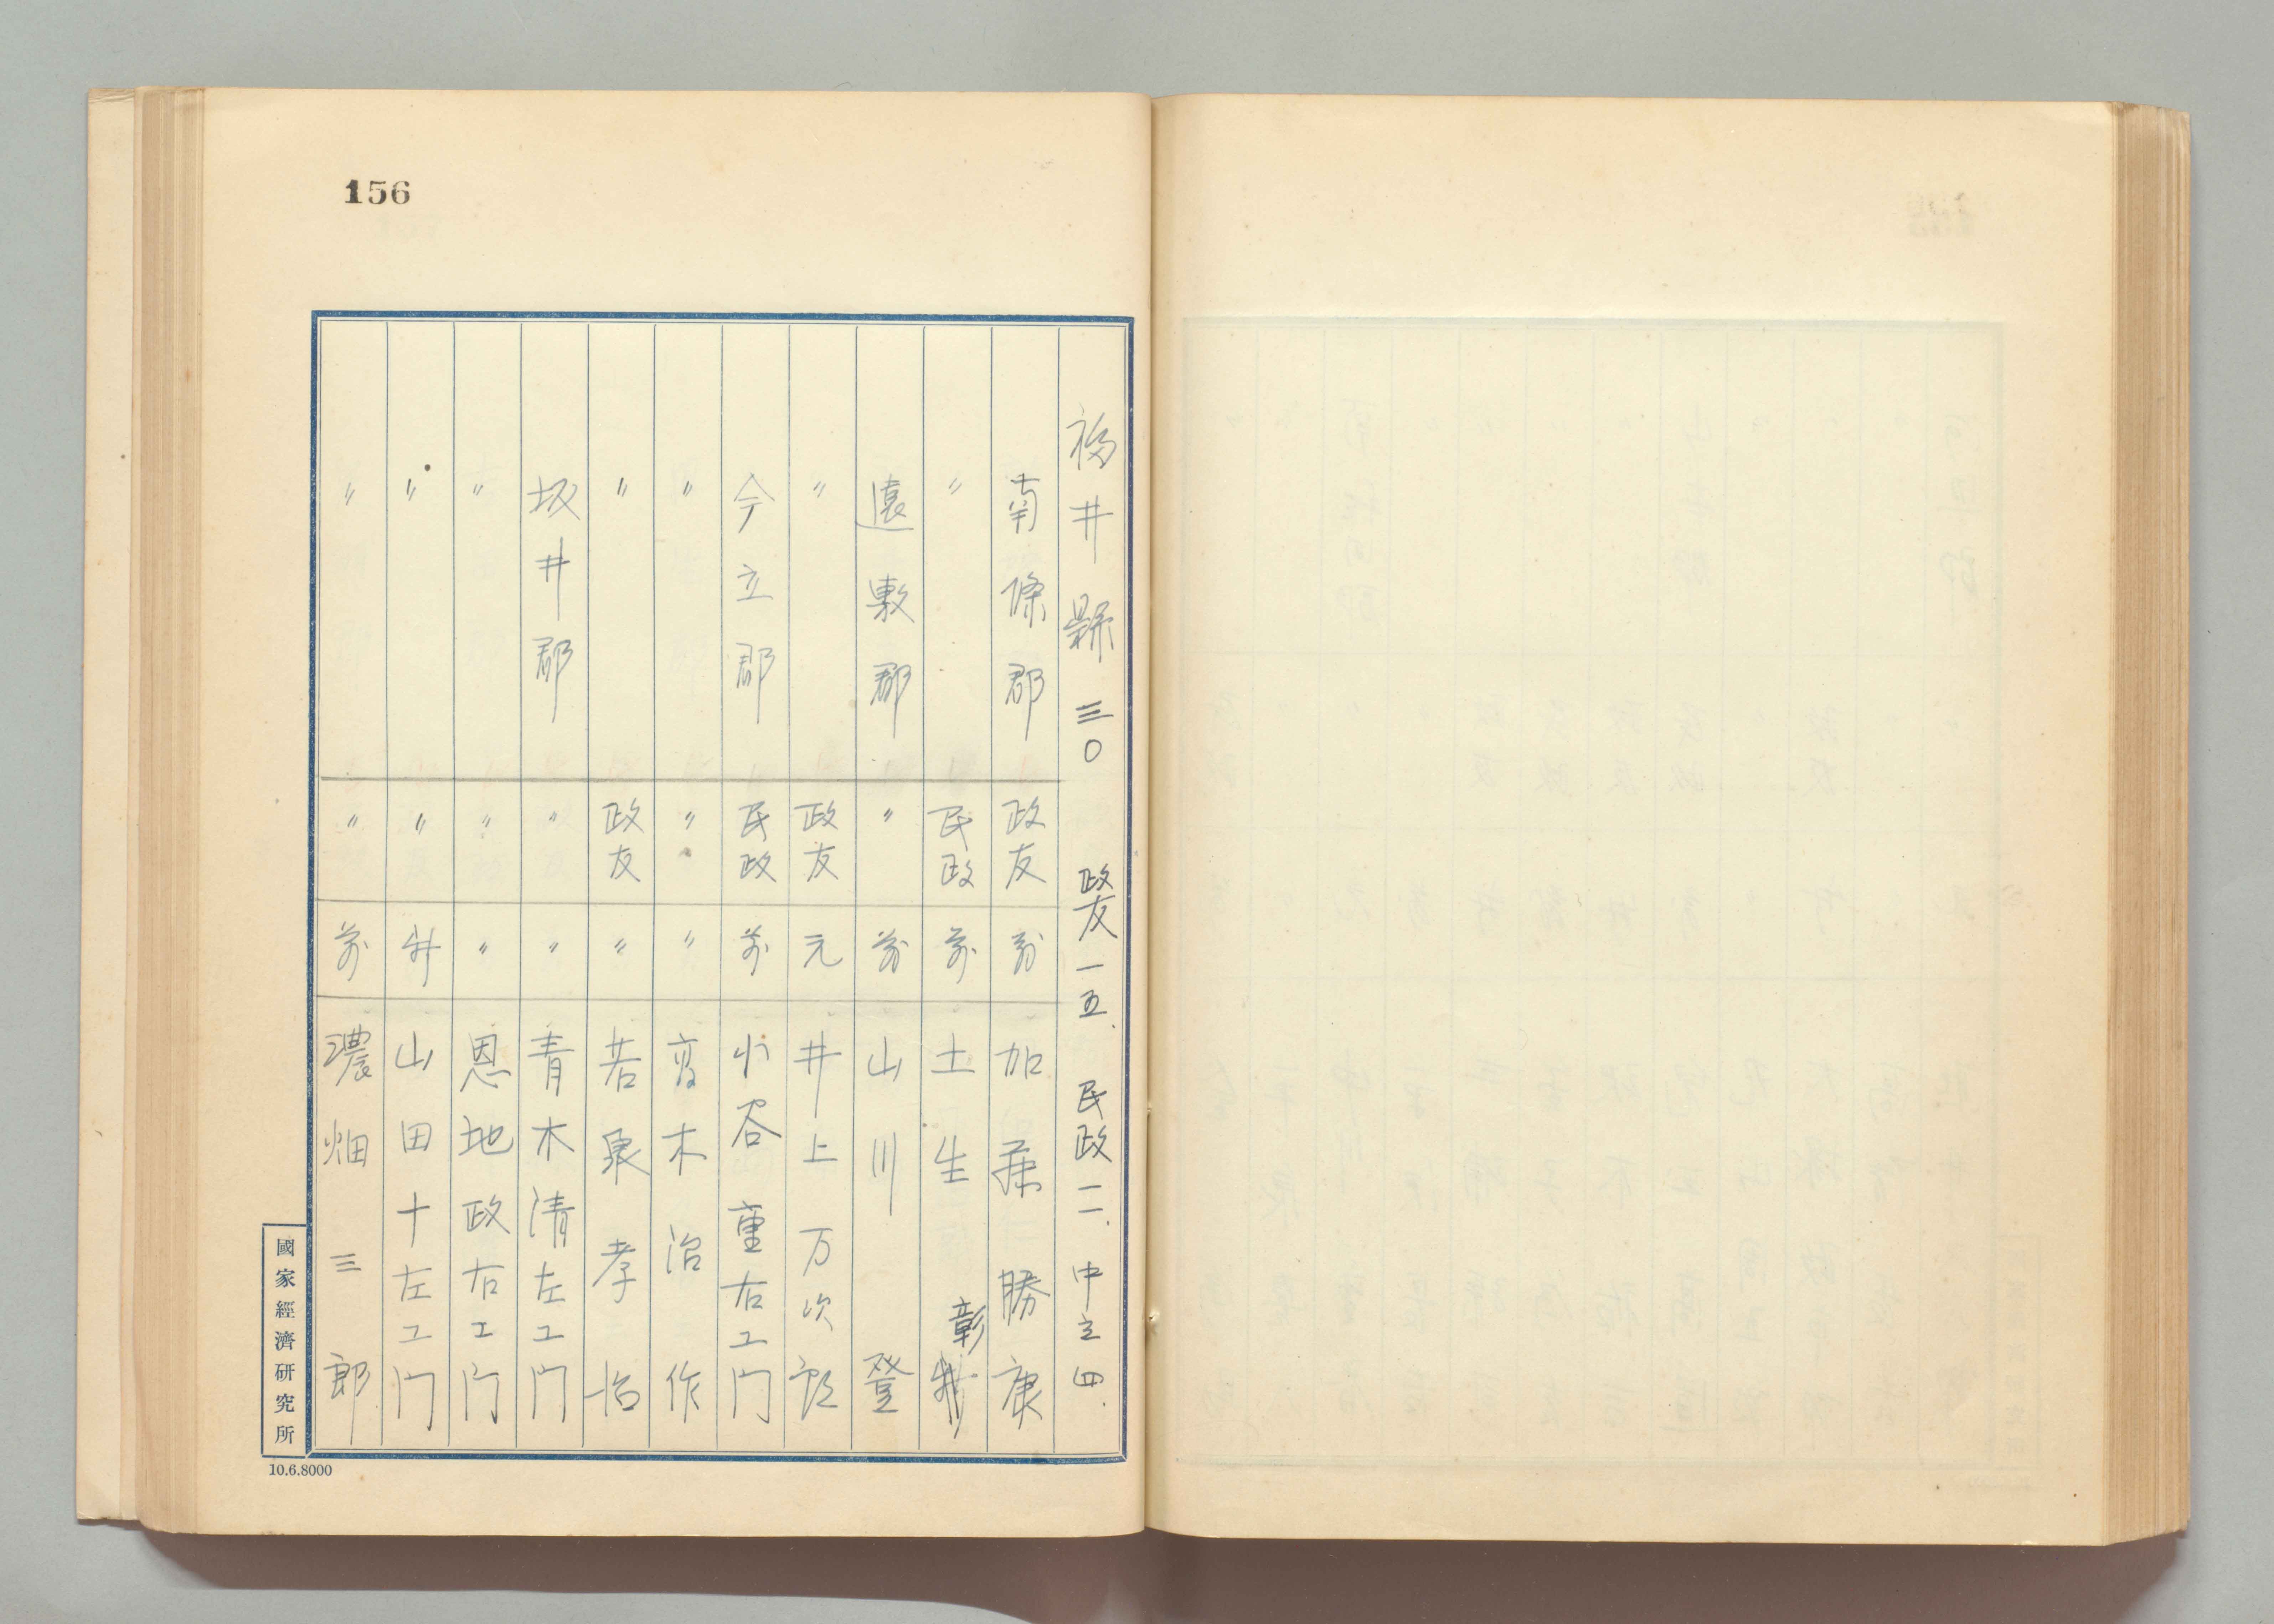 156
福井縣 三〇 政友一五. 民政一一. 中立四.
南條郡 政友 前 加藤勝康
〃 民政 前 土生彰
遠敷郡 〃 前 山川登
〃 政友 元 井上万次郎
今立郡 民政 前 小谷重右エ門
〃 〃 〃 高木治作
〃 政友 〃 若泉孝治
坂井郡 〃 〃 青木清左エ門
〃 〃 〃 恩地政右エ門
〃 〃 新 山田十左エ門
〃 〃 前 濃畑三郎
國家經濟研究所
10.6.8000